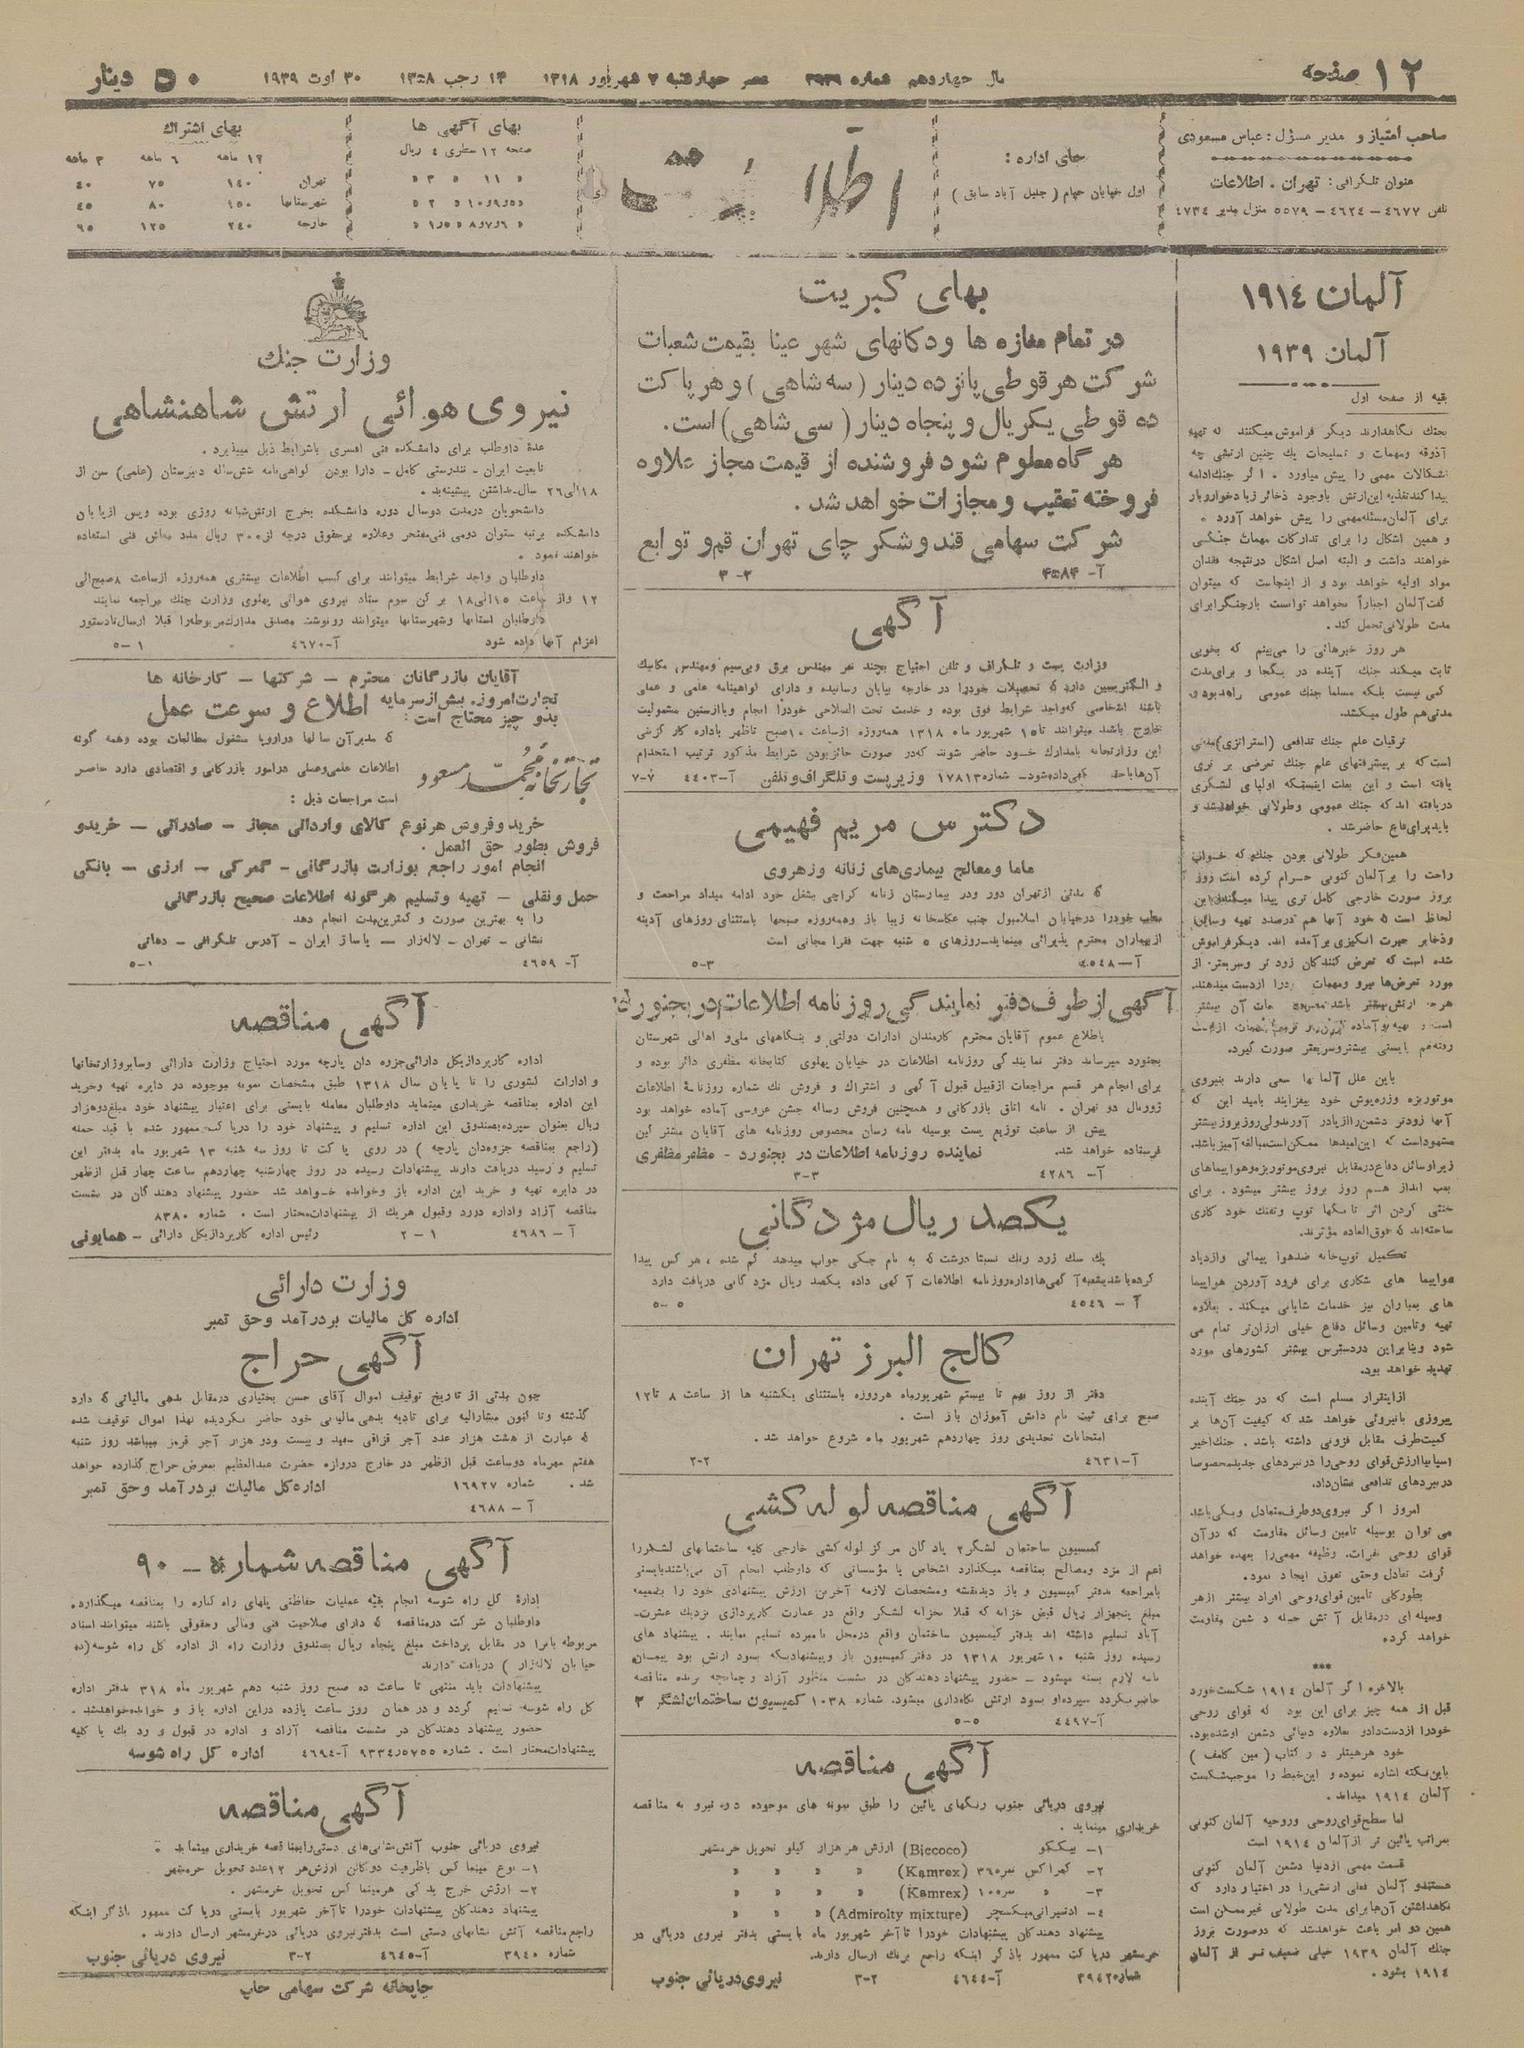 ۱۲ صفحه
سال چهاردهم شماره ۳۹۳۹ عصر چهارشنبه ۷ شهریور ۱۳۱۸ ۱۴ رجب ۱۳۵۸ ۳۰ اوت ۱۹۳۹
۵۰ دینار
صاحب امتیاز و مدیر مسؤل : عباس مسعودی
عنوان تلگرافی : تهران . اطلاعات
تلفن ۴۶۷۷ - ۴۶۲۴ - ۵۵۷۹ منزل مدیر ۴۷۳۴
جای اداره :
اول خیابان خیام ( جلیل آباد سابق )
اطلاعات
بهای آگهی ها
صفحه ۱۲ سطری ۴ ریال
بهای اشتراك
۱۲ ماهه ۶ ماهه ۳ ماهه
تهران ۱۴۰ ۷۵ ۴۰
شهرستانها ۱۵۰ ۸۰ ۴۵
خارجه ۲۴۰ ۱۲۵ ۶۵
آلمان ۱۹۱٤
آلمان ۱۹۳۹
بقیه از صفحه اول
آذوقه و مهمات و تسلیحات یك چنین ارتشی چه
اشکالات مهمی را پیش میاورد . اگر جنك ادامه
برای آلمان مسئله مهمی را پیش خواهد آورد .
و همین اشکال را برای تدارکات مهمات جنگی
خواهند داشت و البته اصل اشکال در نتیجه فقدان
مواد اولیه خواهد بود و از اینجاست که میتوان
گفت آلمان اجباراً نخواهد توانست بار جنگ را برای
مدت طولانی تحمل کند .
هر روز خبرهائی را می‌بینم که بخوبی
ثابت میکند جنك آینده در یکجا و برای مدت
کمی نیست بلکه مسلما جنك عمومی راه بدود و
مدتی هم طول میکشد.
ترقیات علم جنك تدافعی (استراتژی)
است که بر پیشرفتهای علم جنك تعرضی بر تری
یافته است و این بعلت اینستکه اولیای لشکری
دریافته اند که جنك عمومی و طولانی خواهد شد و
باید برای دفاع حاضر شد.
همین فکر طولانی بودن جنك که خواب
راحت را بر آلمان کنونی حرام کرده است روز
بروز صورت خارجی کامل تری پیدا میکند.
باین علل آلمانها سعی دارند بنیروی
موتوریزه وزره پوش خود بیفزایند بامید این که
مشهود است که این امیدها ممکن است مبالغه آمیز باشد.
زیرا وسائل دفاع در مقابل نیروی موتوریزه و هواپیماهای
بمب انداز هم روز بروز بیشتر میشود . برای
خنثی کردن اثر تانکها توپ و تفنك خود کاری
ساخته اند که فوق العاده مؤثرند.
تکمیل توپخانه ضد هوا پیمائی و ازدیاد
هواپیما های شکاری برای فرود آوردن هواپیما
های بمباران نیز خدمات شایانی میکند . بعلاوه
تهیه و تامین وسائل دفاع خیلی ارزان‌تر تمام می
شود و بنابراین در دسترس بیشتر کشورهای مورد
تهدید خواهد بود.
از اینقرار مسلم است که در جنك آینده
پیروزی با نیروئی خواهد شد که کیفیت آن‌ها بر
کمیت طرف مقابل فزونی داشته باشد . جنك اخیر
اسپانیا ارزش قوای روحی را در نبردهای جدید مخصوصا
در نبردهای تدافعی نشان داد.
امروز اگر نیروی دو طرف متعادل و یکی باشد
می توان بوسیله تامین وسائل مقاومت که در آن
قوای روحی نفرات، وظیفه مهمی را بعهده خواهد
گرفت تعادل و حتی تفوق ایجاد نمود.
بطور کلی تامین قوای روحی افراد بیشتر از هر
وسیله ای در مقابل آتش حمله دشمن مقاومت
خواهد کرد.
***
بالاخره اگر آلمان ۱۹۱٤ شکست خورد
قبل از همه چیز برای این بود که قوای روحی
خود را از دست داد و بعلاوه دنیائی دشمن او شده بود.
خود هر هیتلر در کتاب ( مین کامف )
باین نکته اشاره نموده و این خبط را موجب شکست
آلمان ۱۹۱٤ میداند .
اما سطح قوای روحی و روحیه آلمان کنونی
بمراتب پائین تر از آلمان ۱۹۱٤ است
قسمت مهمی از دنیا دشمن آلمان کنونی
هستند و آلمان فعلی ارتشی را در اختیار دارد که
نگاهداشتن آن‌ها برای مدت طولانی غیر ممکن است
همین دو امر باعث خواهند شد که در صورت بروز
جنك آلمان ۱۹۳۹ خیلی ضعیف تر از آلمان
۱۹۱٤ بشود .
بهای کبریت
در تمام مغازه ها و دکانهای شهر عینا بقیمت شعبات
شرکت هر قوطی پانزده دینار ( سه شاهی ) و هر پاکت
ده قوطی یکریال و پنجاه دینار ( سی شاهی ) است .
هر گاه معلوم شود فروشنده از قیمت مجاز علاوه
فروخته تعقیب و مجازات خواهد شد .
شرکت سهامی قند و شکر چای تهران قم و توابع
آ- ۴۵۸۴ ۲-۳
آگهی
وزارت پست و تلگراف و تلفن احتیاج بچند نفر مهندس برق و بی‌سیم و مهندس مکانیك
و الکتریسین دارد که تحصیلات خود را در خارجه بپایان رسانیده و دارای گواهینامه علمی و عملی
باشند اشخاصی که واجد شرایط فوق بوده و خدمت تحت السلاحی خود را انجام و یا از سنین مشمولیت
خارج باشند میتوانند تا ۱۵ شهریور ماه ۱۳۱۸ همه روزه از ساعت ۱۰ صبح تا ظهر باداره کارگزینی
این وزارتخانه با مدارك خود حاضر شوند که در صورت حائز بودن شرایط مذکور ترتیب استخدام
آن‌ها داده شود - شماره ۱۷۸۱۳ وزیر پست و تلگراف و تلفن آ-۴۴۰۳ ۷-۷
دکترس مریم فهیمی
ماما و معالج بیماری‌های زنانه و زهروی
که مدتی از تهران دور و در بیمارستان زنانه کراچی بشغل خود ادامه میداد مراجعت و
مطب خود را در خیابان اسلامبول جنب عکاسخانه زیبا باز و همه روزه صبحها باستثنای روزهای آدینه
از بیماران محترم پذیرائی مینماید - روزهای ۵ شنبه جهت فقرا مجانی است
آ- ۴۵۴۸ ۳-۵
آگهی از طرف دفتر نمایندگی روزنامه اطلاعات در بجنورد
باطلاع عموم آقایان محترم کارمندان ادارات دولتی و بنگاههای ملی و اهالی شهرستان
بجنورد میرساند دفتر نمایندگی روزنامه اطلاعات در خیابان پهلوی کتابخانه مظفری دائر بوده و
برای انجام هر قسم مراجعات از قبیل قبول آگهی و اشتراك و فروش تك شماره روزنامهٔ اطلاعات
ژورنال دو تهران . نامه اتاق بازرگانی و همچنین فروش رساله جشن عروسی آماده خواهد بود
پیش از ساعت توزیع پست بوسیله نامه رسان مخصوص روزنامه های آقایان مشترکین
فرستاده خواهد شد. نماینده روزنامه اطلاعات در بجنورد - مظفر مظفری
آ- ۴۲۸۶ ۳-۳
یکصد ریال مژدگانی
یك سك زرد رنك نسبتا درشت که به نام جکی جواب میدهد گم شده ، هر کس پیدا
کرده باشد بشعبه آگهی‌ها اداره روزنامه اطلاعات آگهی داده یکصد ریال مژدگانی دریافت دارد
آ- ۴۵۴۶ ۵-۵
کالج البرز تهران
دفتر از روز نهم تا بیستم شهریورماه هر روزه باستثنای یکشنبه ها از ساعت ۸ تا ۱۲
صبح برای ثبت نام دانش آموزان باز است .
امتحانات تجدیدی روز چهاردهم شهریور ماه شروع خواهد شد .
آ-۴۶۳۱ ۲-۲
آگهی مناقصه لوله کشی
کمیسیون ساختمان لشگر ۲ پادگان مرکز لوله کشی خارجی کلیه ساختمانهای لشگر را
اعم از مزد و مصالح بمناقصه میگذارد اشخاص یا مؤسساتی که داوطلب انجام آن می‌باشند بایستی
بامراجعه بدفتر کمیسیون و باز دید نقشه و مشخصات لازمه آخرین ارزش پیشنهادی خود را بضمیمه
مبلغ پنجهزار ریال قبض خزانه که قبلا بخزانه لشگر واقع در عمارت کارپردازی نزدیك عشرت-
آباد تسلیم داشته اند بدفتر کمیسیون ساختمان واقع در محل نامبرده تسلیم نمایند . پیشنهاد های
رسیده روز شنبه ۱۰ شهریور ۱۳۱۸ در دفتر کمیسیون باز و پیشنهادیکه بسود ارتش بود پیمان
نامه لازم بسته میشود - حضور پیشنهاد دهندگان در نشست منظور آزاد و چنانچه برنده مناقصه
حاضر نگردد سپرده او بسود ارتش نگاهداری میشود. شماره ۱۰۳۸ کمیسیون ساختمان لشگر ۲
آ-۴۴۹۷ ۵-۵
آگهی مناقصه
نیروی دریائی جنوب رنگهای پائین را طبق نمونه های موجوده در نیرو به مناقصه
خریداری مینماید .
۱- بیککو (Biccoco) ارزش هر هزار کیلو تحویل خرمشهر
۲- کمراکس نمره ۳۶ (Kamrex) » » » »
۳- » نمره ۱۰۰ (Kamrex) » » » »
۴- ادمیرالتی میکسچر (Admirolty mixture) » » »
پیشنهاد دهندگان پیشنهادات خود را تا آخر شهریور ماه بایستی بدفتر نیروی دریائی در
خرمشهر در پاکت ممهور با ذکر اینکه راجع برنك ارسال دارند.
شماره ۳۹۴۲ آ-۴۶۴۴ ۲-۳ نیروی دریائی جنوب
وزارت جنك
نیروی هوائی ارتش شاهنشاهی
عدهٔ داوطلب برای دانشکده فنی افسری باشرایط ذیل میپذیرد .
تابعیت ایران - تندرستی کامل - دارا بودن گواهی‌نامه شش‌ساله دبیرستان (علمی) سن از
۱۸ الی ۲۶ سال - نداشتن پیشینه بد .
دانشجویان در مدت دو سال دوره دانشکده بخرج ارتش شبانه روزی بوده و پس از پایان
دانشکده برتبه ستوان دومی فنی مفتخر و علاوه بر حقوق درجه از ۳۰۰ ریال مدد معاش فنی استفاده
خواهند نمود .
داوطلبان واجد شرایط میتوانند برای کسب اطلاعات بیشتری همه روزه از ساعت ۸ صبح الی
۱۲ و از ساعت ۱۵ الی ۱۸ بر کن سوم ستاد نیروی هوائی پهلوی وزارت جنك مراجعه نمایند
داوطلبان استانها و شهرستانها میتوانند رونوشت مصدق مدارك مربوطه را قبلا ارسال تا دستور
اعزام آنها داده شود آ- ۴۶۷۰ ۱-۵
آقایان بازرگانان محترم - شرکتها - کارخانه ها
تجارت امروز بیش از سرمایه اطلاع و سرعت عمل
بدو چیز محتاج است :
تجارتخانه محمد مسعود
که مدیر آن سالها در اروپا مشغول مطالعات بوده و همه گونه
اطلاعات علمی و عملی در امور بازرگانی و اقتصادی دارد حاضر
است مراجعات ذیل :
خرید و فروش هر نوع کالای وارداتی مجاز - صادراتی - خرید و
فروش بطور حق العمل .
انجام امور راجع بوزارت بازرگانی - گمرکی - ارزی - بانکی
حمل و نقلی - تهیه و تسلیم هر گونه اطلاعات صحیح بازرگانی
را به بهترین صورت و کمترین مدت انجام دهد
نشانی - تهران - لاله‌زار - پاساژ ایران - آدرس تلگرافی - دهاتی
آ- ۴۶۵۹ ۱-۵
آگهی مناقصه
اداره کارپردازیکل دارائی جزوه دان پارچه مورد احتیاج وزارت دارائی و سایر وزارتخانها
و ادارات کشوری را تا پایان سال ۱۳۱۸ طبق مشخصات نمونه موجوده در دایره تهیه و خرید
این اداره بمناقصه خریداری مینماید داوطلبان معامله بایستی برای اعتبار پیشنهاد خود مبلغ دو هزار
ریال بعنوان سپرده بصندوق این اداره تسلیم و پیشنهاد خود را در پاکت ممهور شده با قید جمله
(راجع بمناقصه جزوه‌دان پارچه ) در روی پاکت تا روز سه شنبه ۱۳ شهریور ماه بدفتر این
تسلیم و رسید دریافت دارند پیشنهادات رسیده در روز چهارشنبه چهاردهم ساعت چهار قبل از ظهر
در دایره تهیه و خرید این اداره باز و خوانده خواهد شد حضور پیشنهاد دهندگان در نشست
مناقصه آزاد و اداره در رد و قبول هر یك از پیشنهادات مختار است . شماره ۸۳۸۰
آ- ۴۶۸۶ ۱-۲ رئیس اداره کارپردازیکل دارائی - همایونی
وزارت دارائی
اداره کل مالیات بر درآمد و حق تمبر
آگهی حراج
چون مدتی از تاریخ توقیف اموال آقای حسن بختیاری در مقابل بدهی مالیاتی که دارد
گذشته و تا کنون مشارالیه برای تادیه بدهی مالیاتی خود حاضر نگردیده لهذا اموال توقیف شده
که عبارت از هشت هزار عدد آجر قزاقی سفید و بیست و دو هزار آجر قرمز میباشد روز شنبه
هفتم مهرماه دو ساعت قبل از ظهر در خارج دروازه حضرت عبدالعظیم بمعرض حراج گذارده خواهد
شد . شماره ۱۶۹۲۷ اداره کل مالیات بر درآمد و حق تمبر
آ- ۴۶۸۸
آگهی مناقصه شماره - ۹۰
ادارهٔ کل راه شوسه انجام بقیهٔ عملیات حفاظتی پلهای راه کناره را بمناقصه میگذارد.
داوطلبان شرکت در مناقصه که دارای صلاحیت فنی و مالی و حقوقی باشند میتوانند اسناد
مربوطه بانرا در مقابل پرداخت مبلغ پنجاه ریال بصندوق وزارت راه از اداره کل راه شوسه (
خیابان لاله‌زار ) دریافت دارند
پیشنهادات باید منتهی تا ساعت ده صبح روز شنبه دهم شهریور ماه ۳۱۸ بدفتر اداره
کل راه شوسه تسلیم گردد و در همان روز ساعت یازده در این اداره باز و خوانده خواهد شد .
حضور پیشنهاد دهندگان در نشست مناقصه آزاد و اداره در قبول و رد یك یا کلیه
پیشنهادات مختار است . شماره ۹۳۳۴ر۵۷۵۵ آ-۴۶۹۴ اداره کل راه شوسه
آگهی مناقصه
نیروی دریائی جنوب آتش‌نشانی‌های دستی را بمناقصه خریداری مینماید .
۱- نوع مینماکس با ظرفیت دو گالن ارزش هر ۱۲ عدد تحویل خرمشهر
۲- ارزش خرج یدکی هر مینماکس تحویل خرمشهر .
پیشنهاد دهندگان پیشنهادات خود را تا آخر شهریور بایستی در پاکت ممهور با ذکر اینکه
راجع مناقصه آتش نشانهای دستی است بدفتر نیروی دریائی در خرمشهر ارسال دارند .
شماره ۳۹۴۰ آ-۴۶۴۵ ۲-۳ نیروی دریائی جنوب
چاپخانه شرکت سهامی چاپ